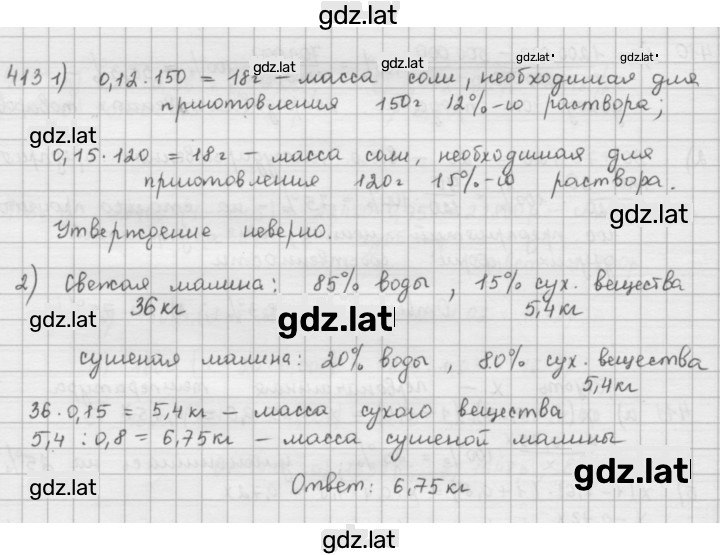 gdz.lat
413 1) 0,12·150 = 18г – масса соли, необходимая для
gdz.lat gdz.lat gdz.lat
приготовления 150г 12%-го раствора;
gdz.lat
0,15·120 = 18г – масса соли, необходимая для
приготовления 120г 15%-го раствора.
gdz.lat
Утверждение неверно.
2) Свежая малина: 85% воды, 15% сух. вещества
36 кг 5,4кг
gdz.lat gdz.lat gdz.lat
сушеная малина: 20% воды, 80% сух. вещества
5,4кг
36·0,15 = 5,4кг – масса сухого вещества
5,4 : 0,8 = 6,75кг – масса сушеной малины
gdz.lat
gdz.lat Ответ: 6,75кг
gdz.lat